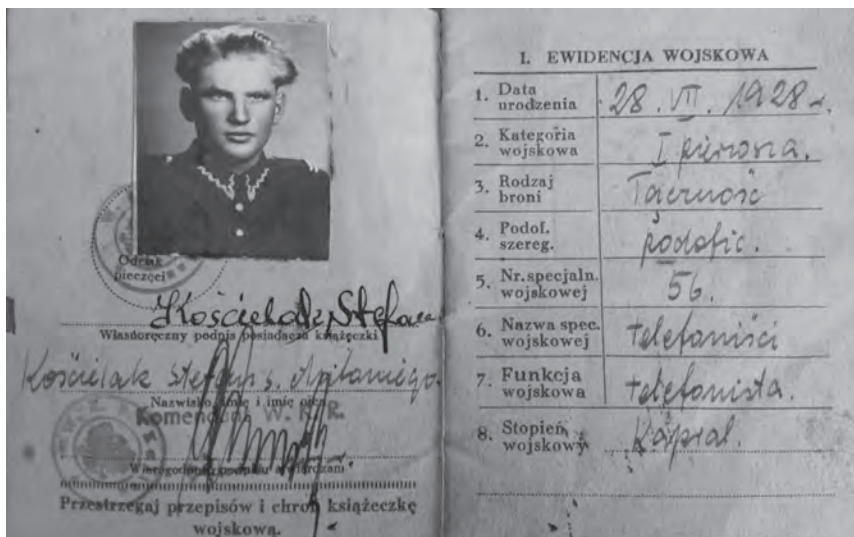 Odcisk
pieczęci
Kościelak Stefan
Własnoręczny podpis posiadacza książeczki
Kościelak Stefan s. Antoniego.
Nazwisko, imię i imię ojca
Komendant W. K. R.
Przestrzegaj przepisów i chroń książeczkę
wojskową.
I. EWIDENCJA WOJSKOWA
1. Data
urodzenia 28. VII. 1928 r.
2. Kategoria
wojskowa I pierwsza.
3. Rodzaj
broni Łączność
4. Podof.
szereg. podofic.
5. Nr. specjaln.
wojskowej 56.
6. Nazwa spec.
wojskowej telefoniści
7. Funkcja
wojskowa telefonista.
8. Stopień
wojskowy Kapral.